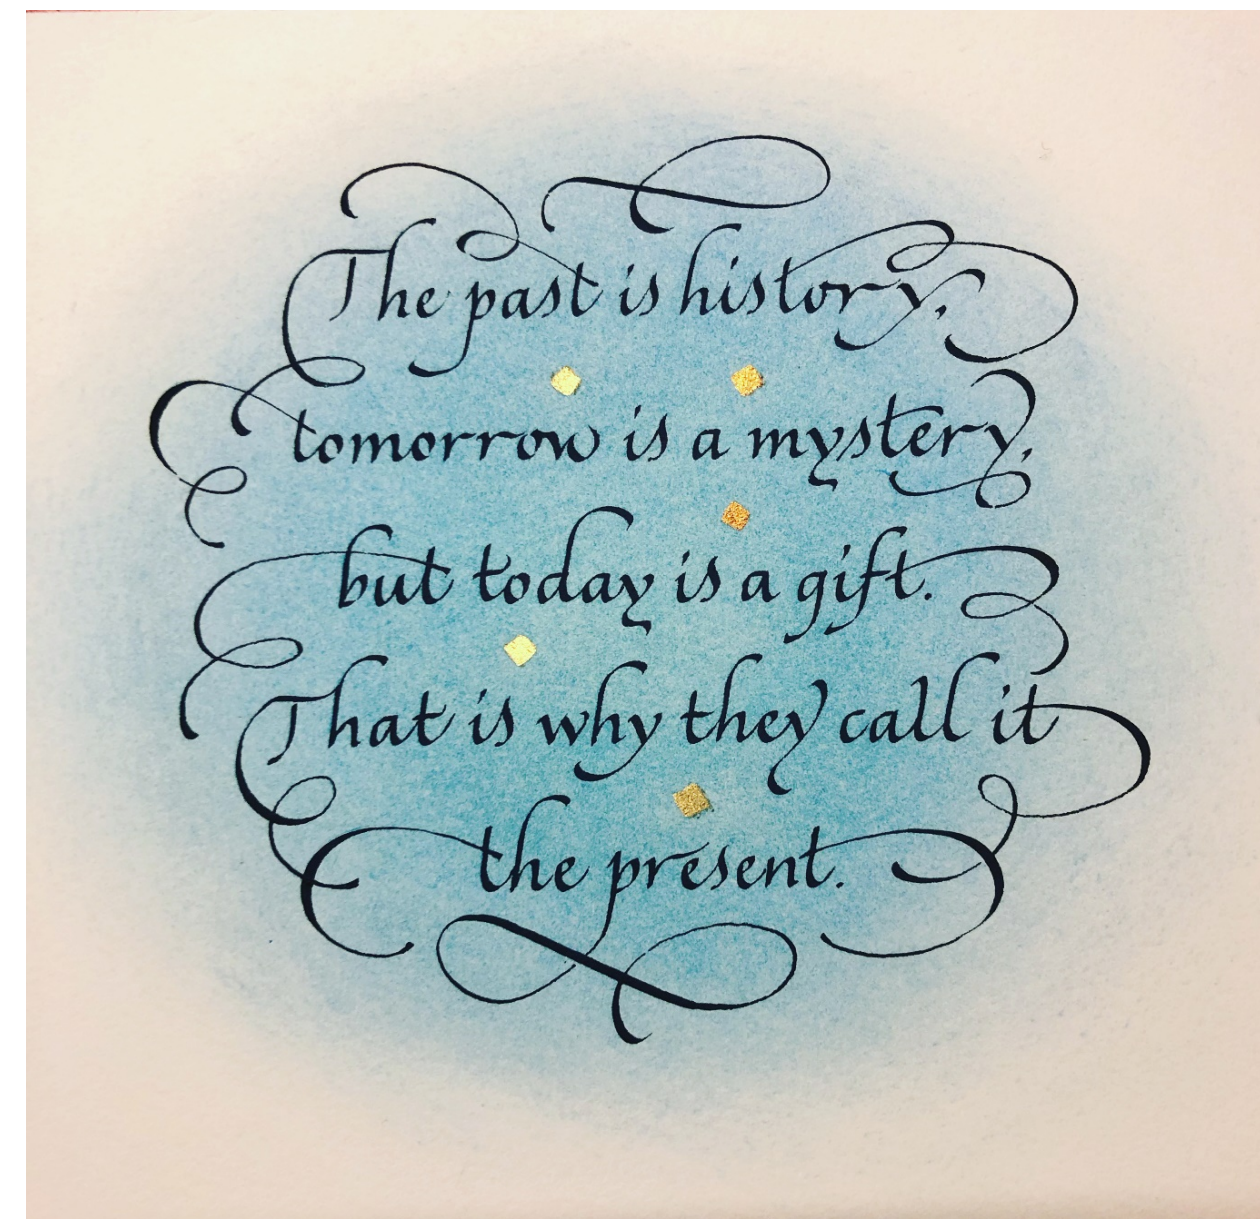 The past is history,
tomorrow is a mystery,
but today is a gift.
That is why they call it
the present.